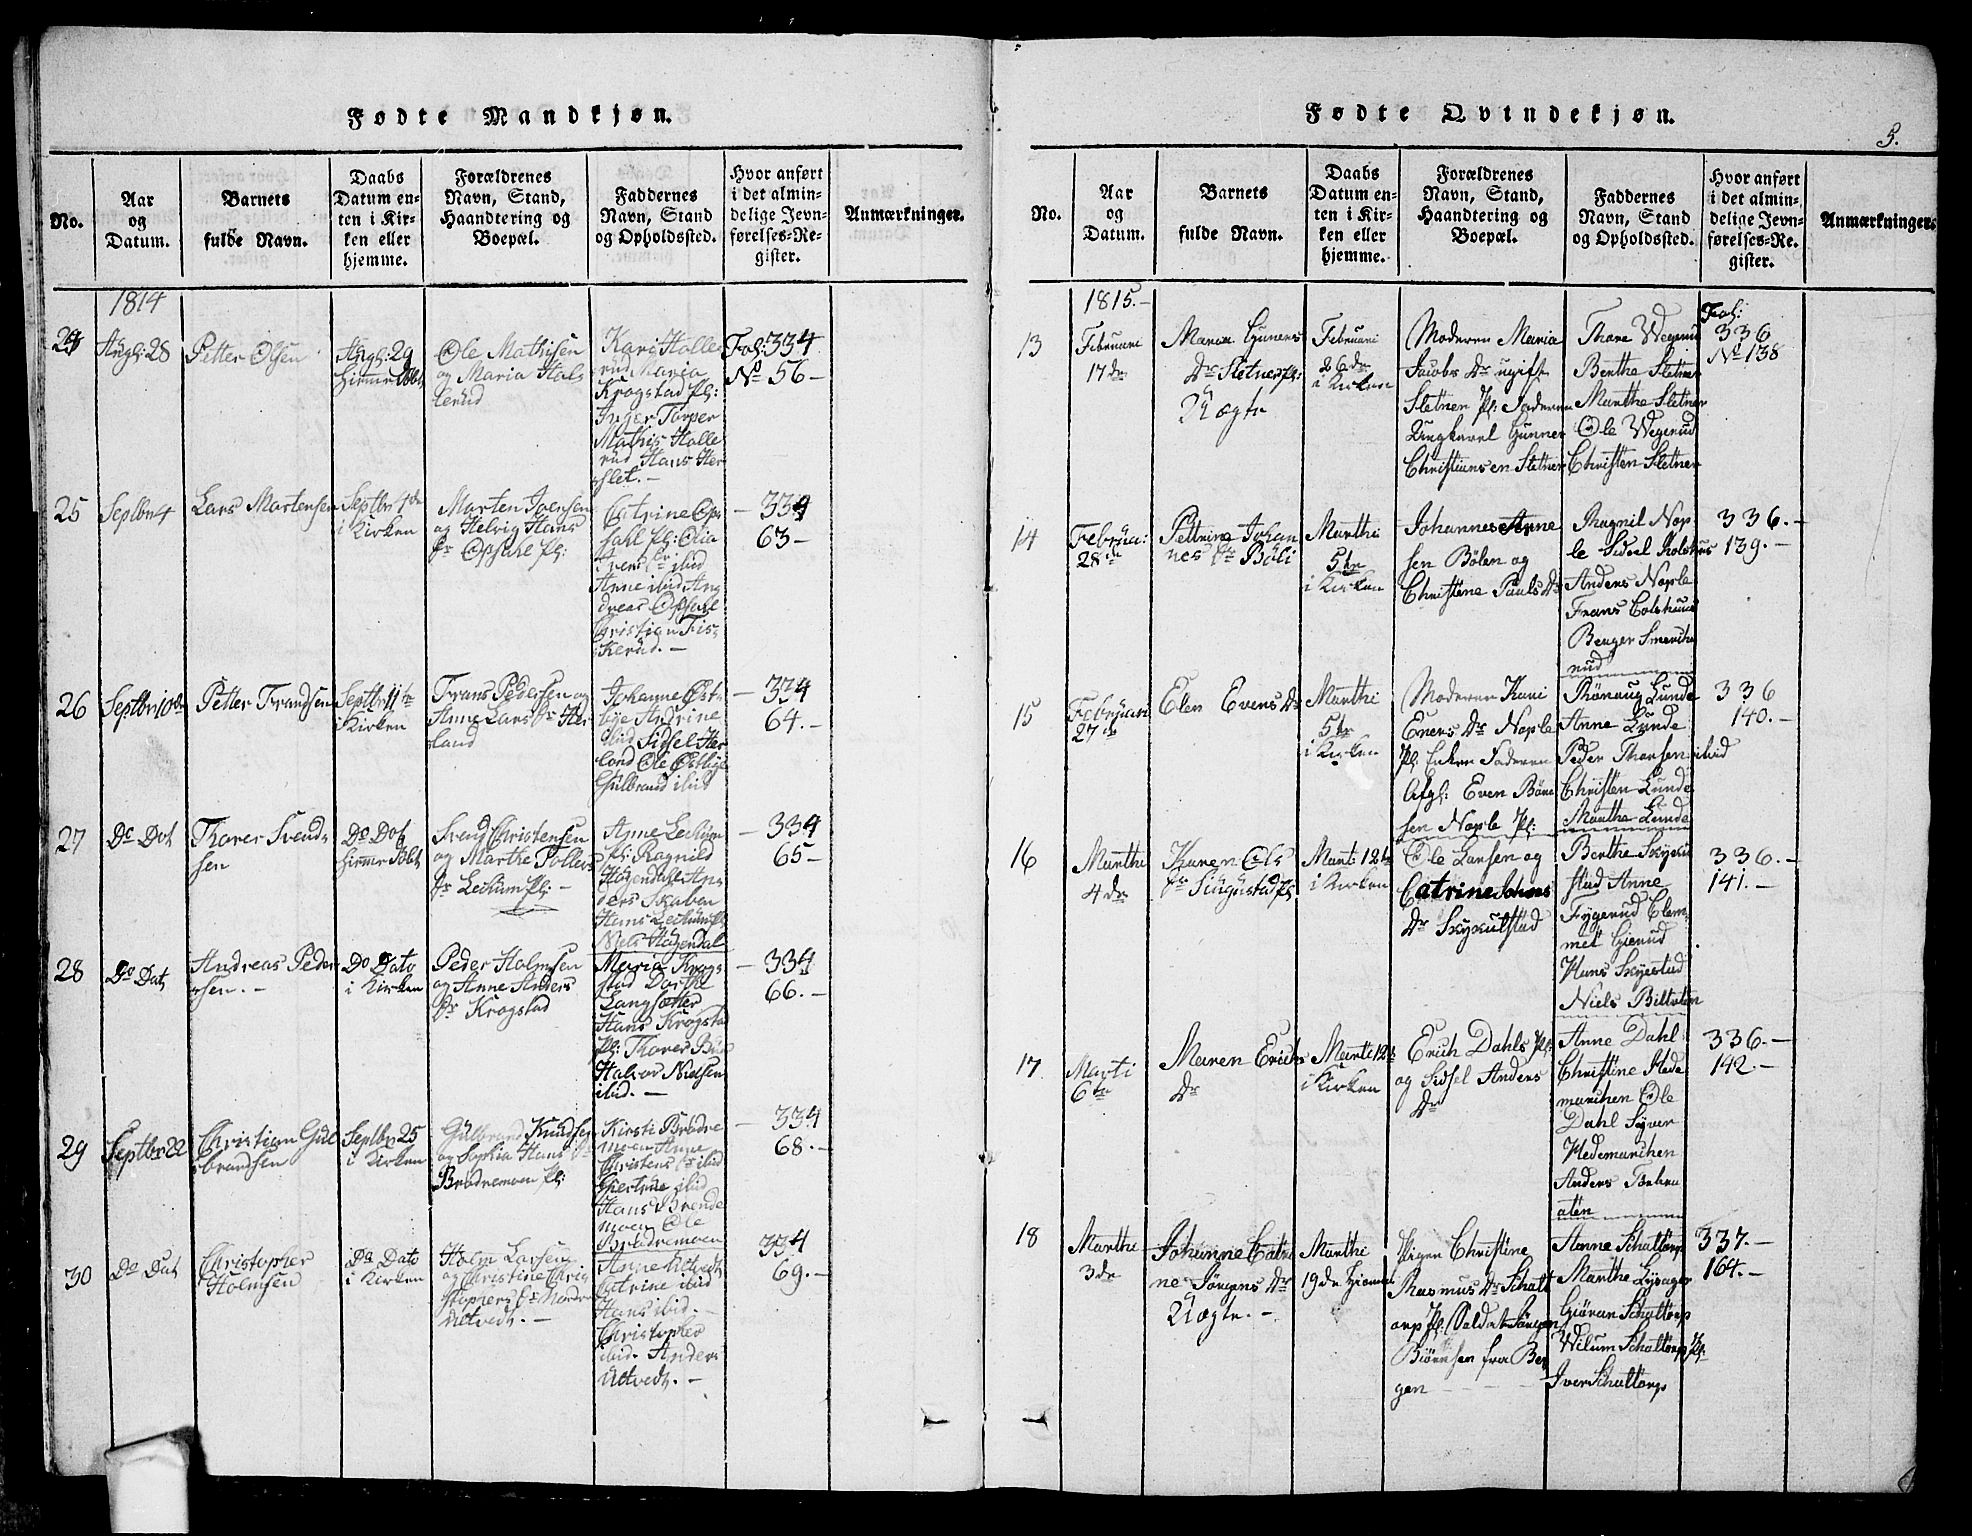 Fødte Mandkjøn.
No.
Aar
og
Datum.
Barnets
fulde Navn.
Daabs
Datum en-
ten i Kir-
ken eller
hjemme.
Forældrenes
Navn, Stand,
Haandtering og
Boepæl.
Faddernes
Navn, Stand
og Opholdssted.
Hvor anført
i det almin-
delige Jevn-
førelses-Re-
gister.
Anmærkninger.
1814
24
Augl: 28
Petter Olsen
Augl: 29
Ole Mathisen
og Maria Hals
lerud
Kari Halle
rud Maria
Krogstad pl:
Inger Torper
Mathis Halle
rud Hans Her
slet. —
Fol: 334
No 56 —
25
Septbr 4
Lars Martensen
Septbr 4de
i Kirken
Marten Joensen
og Helvig Hans
Dr Opsahl pl:
Catrine Op
sahl pl: Olia
Svends Dr ibid
Anne ibid, An
dreas Opsahl
Christian Fis
kerud. —
— 334
63 —
26
Septbr 10de
Petter Frandsen
Septbr 11te
i Kirken
Frans Pedersen og
Anne Lars Dr Her
land
Johanne Øst
bye Andrine
ibid Sidsel Her
land Ole Østbye
Gulbrand ibid
— 334
64. —
27
Do Dot
Thorer Svend-
sen
Do Dot
Svend Christensen
og Marthe Pollers
Dr Lechum pl: —
Anne Lechum
pl: Ragnild
Høgendahl An
ders Skaben
Hans Lechum pl:
Niels Høgendal
— 334
65 —
28
Do Dat
Andreas Peder
sen. —
Do Dato
i Kirken
Peder Holmsen
og Anne Anders
Dr Krogstad
Maria Krog
stad Dorthe
Langsætter
Hans Krogstad
pl: Thorer Bue
Halvor Nielsen
ibid. —
— 334
66. —
29
Septbr 22
Christian Gul
brandsen
Septbr 25
i Kirken
Gulbrand Knudsen
og Sophia Hans Dr
Brødremoen pl:
Kirsti Brødre
moen Anne
Christens Dr ibid
Giertrue ibid
Hans Brende
moen Ole
Brødremoen
— 334
68. —
30
Do Dat
Christopher
Holmsen
Do Dato
i Kirken
Holm Larsen
og Christine Chri
stophers Dr Nordre
Ultvedt. —
Anne Ultvedt
Catrine ibid
Hans ibid. —
Christopher
ibid. Anders
Ultvedt. —
334
69. —
Fødte Qvindekjøn.
5.
No.
Aar
og
Datum.
Barnets
fulde Navn.
Daabs
Datum en-
ten i Kir-
ken eller
hjemme.
Forældrenes
Navn, Stand,
Haandtering og
Boepæl.
Faddernes
Navn, Stand
og Opholdssted.
Hvor anført
i det almin-
delige Jevn-
førelses-Re-
gister.
Anmærkninger.
1815. —
13
Februari
17de
Maren Guners
Dr Sletner pl:
Uægte
Februari
26de
i Kirken
Moderen Maria
Jacobs Dr ugift
Sletner pl: Faderen
Ungkarl Gunner
Christiansen Sletner
Thore Wegerud
Berthe Sletner
Marthe Sletner
Ole Wegerud
Christen Sletner
Fol:
336
No 138
14
Februa:
28de
Pettrine Johan
nes Dr Böli
Marthi
5te
i Kirken
Johannes Arne
sen Bölen og
Christene Pauls Dr
Ragnil Nop
le Sidsel Kolshus
Anders Nople
Frans Colshuus
Berger Smerthe
rud
336. —
139. —
15
Februari
27de
Elen Evens Dr
Marthi
5te
i Kirken
Moderen Kari
Eners Dr Nople
pl: Enken Faderen
Afgl: Even Böre
sen Nople pl:
Rönaug Lunde
Anne Lunde
Peder Thoresen ibid
Christen Lunde
Marthe Lunde
336
140. —
16
Marthe
4de
Karen Ols
Dr Siugustad pl:
Marti 12te
i Kirken
Ole Larsen og
Catrine Johans
Dr Skykulstad
Berthe Skyku
stad Anne
Fygerud Clem
met Gierud
Hans Skyestad
Niels Biltvten
336. —
141. —
17
Marti
6te
Maren Erichs
Dr
Marti 12te
i Kirken
Erich Dahls pl:
og Sidsel Anders
Dr
Anne Dahl
Christine Hede
marchen Ole
Dahl Syver
Hedemarchen
Anders Torkru
aten
336. —
142. —
18
Marthe
3de
Johanne Catri
ne Sörgens Dr
Uægte. —
Marthi
19de Hjemme
Pigen Christine
Rasmus Dr Schatt
orp pl: Soldat Sörgen
Biörnsen fra Ber
gen
Anne Schattorp
Marthe Lysager
Giöran Schattorp
Wilum Schattorp pl:
Iver Schattorp
337. —
164. —